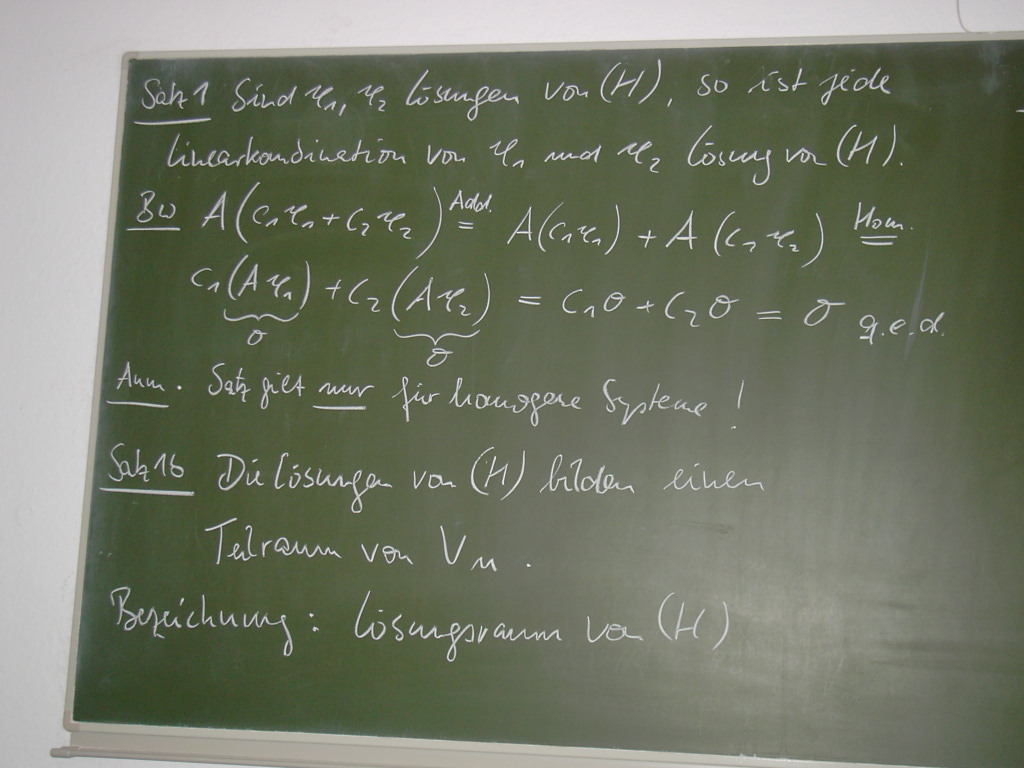 Satz 1 Sind 𝔵₁, 𝔵₂ Lösungen von (H), so ist jede
Linearkombination von 𝔵₁ und 𝔵₂ Lösung von (H).
Bw A(c₁𝔵₁ + c₂𝔵₂) Add. = A(c₁𝔵₁) + A(c₂𝔵₂) Hom. =
c₁(A𝔵₁) + c₂(A𝔵₂) = c₁σ + c₂σ = σ q.e.d.
σ σ
Anm. Satz gilt nur für homogene Systeme!
Satz 1b Die Lösungen von (H) bilden einen
Teilraum von Vn.
Bezeichnung: Lösungsraum von (H)